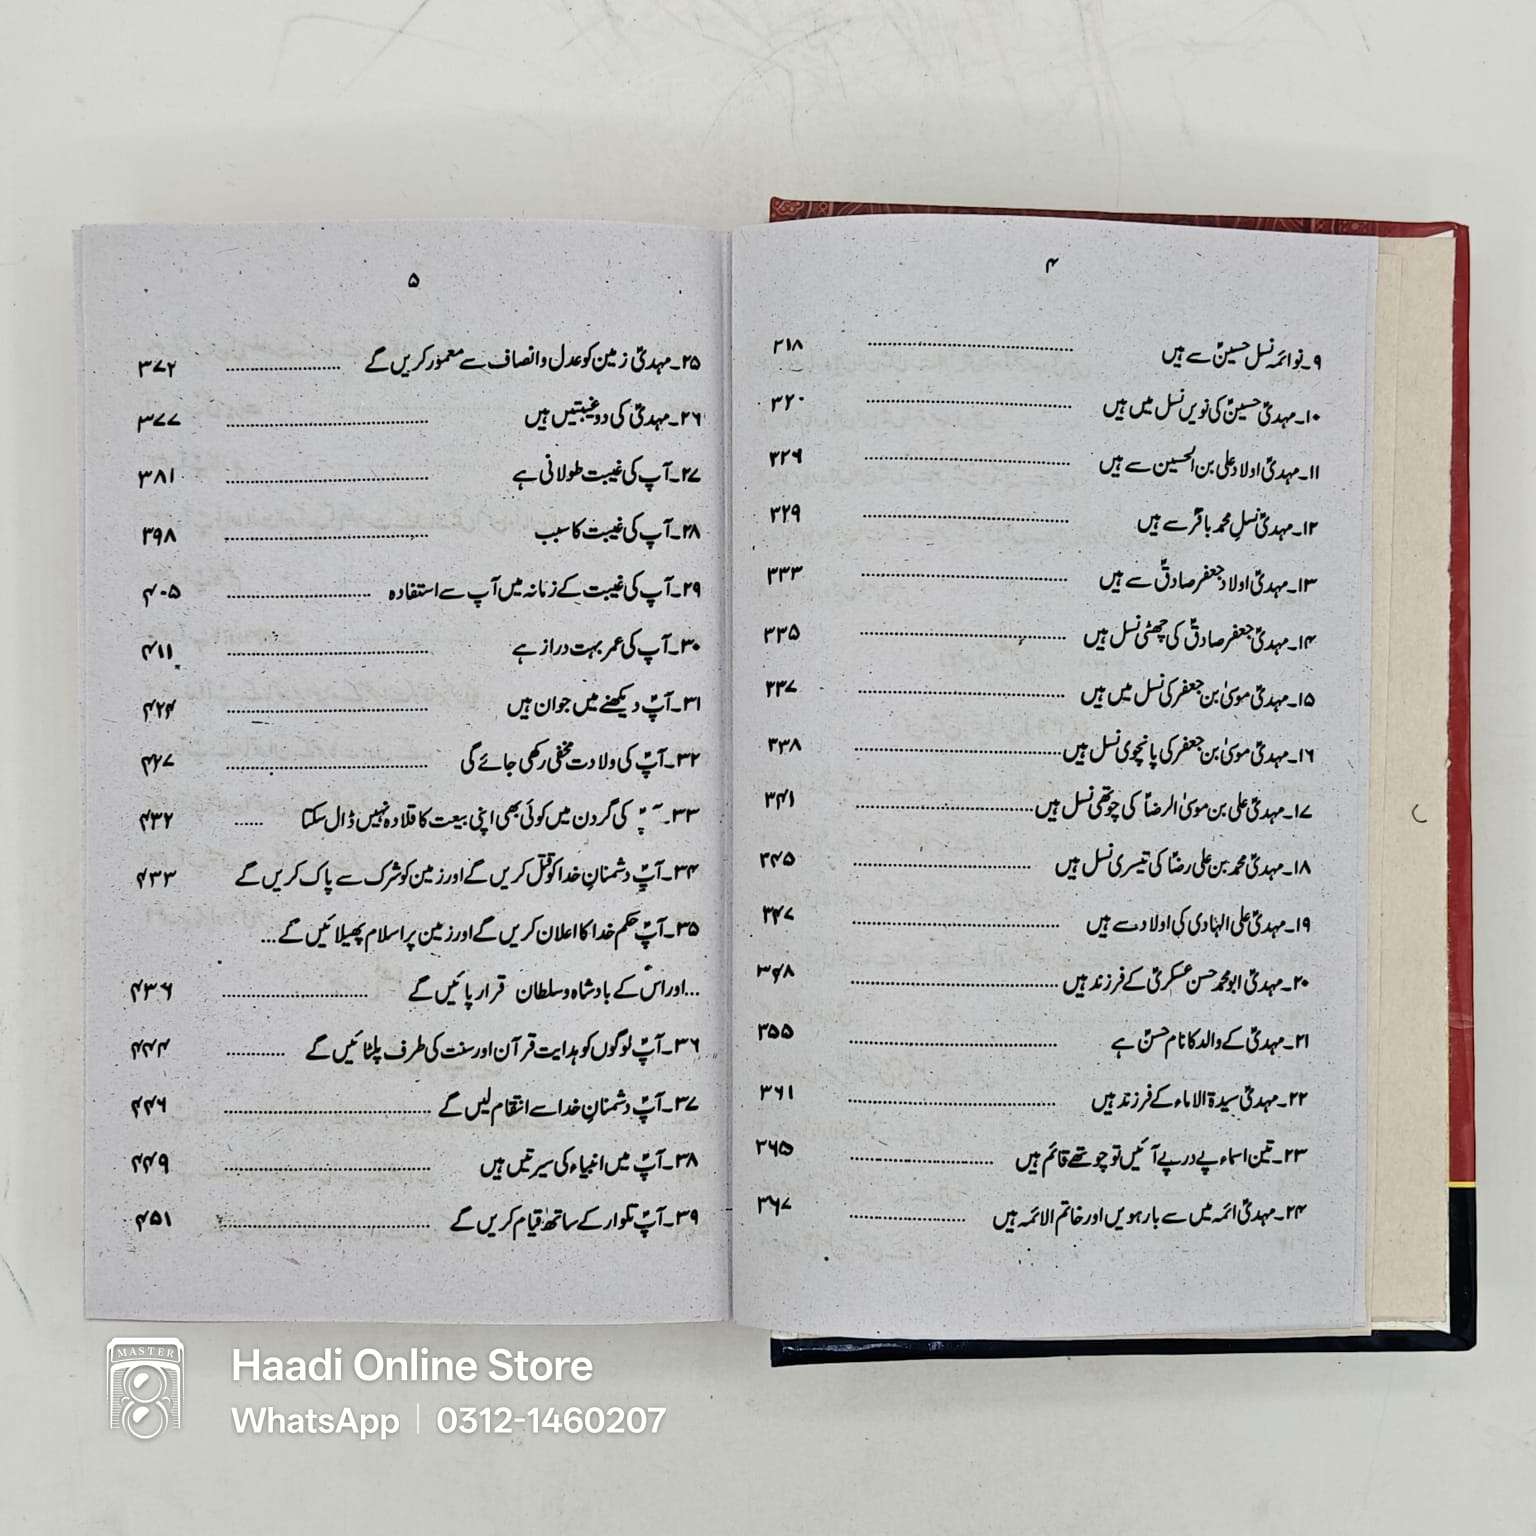 ۴
۹۔ نو ائمہ نسل حسینؑ سے ہیں ........ ۲۱۸
۱۰۔ مہدیؑ حسینؑ کی نویں نسل میں ہیں ........ ۳۲۰
۱۱۔ مہدیؑ اولاد علی بن الحسین سے ہیں ........ ۳۲۶
۱۲۔ مہدیؑ نسلِ محمد باقرؑ سے ہیں ........ ۳۲۹
۱۳۔ مہدیؑ اولاد جعفر صادقؑ سے ہیں ........ ۳۳۳
۱۴۔ مہدیؑ جعفر صادقؑ کی چھٹی نسل ہیں ........ ۳۳۵
۱۵۔ مہدیؑ موسیٰ بن جعفر کی نسل میں ہیں ........ ۳۳۷
۱۶۔ مہدیؑ موسیٰ بن جعفر کی پانچوی نسل ہیں ........ ۳۳۸
۱۷۔ مہدیؑ علی بن موسیٰ الرضاؑ کی چوتھی نسل ہیں ........ ۳۴۱
۱۸۔ مہدیؑ محمد بن علی رضاؑ کی تیسری نسل ہیں ........ ۳۴۵
۱۹۔ مہدیؑ علی الہادی کی اولاد سے ہیں ........ ۳۴۷
۲۰۔ مہدیؑ ابو محمد حسن عسکریؑ کے فرزند ہیں ........ ۳۴۸
۲۱۔ مہدیؑ کے والد کا نام حسنؑ ہے ........ ۳۵۵
۲۲۔ مہدیؑ سیدۃ الاماء کے فرزند ہیں ........ ۳۶۱
۲۳۔ تین اسماء پے در پے آئیں تو چوتھے قائم ہیں ........ ۳۶۵
۲۴۔ مہدیؑ ائمہ میں سے بارہویں اور خاتم الائمہ ہیں ........ ۳۶۷
۵
۲۵۔ مہدیؑ زمین کو عدل و انصاف سے معمور کریں گے ........ ۳۷۲
۲۶۔ مہدیؑ کی دو غیبتیں ہیں ........ ۳۷۷
۲۷۔ آپ کی غیبت طولانی ہے ........ ۳۸۱
۲۸۔ آپ کی غیبت کا سبب ........ ۳۹۸
۲۹۔ آپ کی غیبت کے زمانہ میں آپ سے استفادہ ........ ۴۰۵
۳۰۔ آپ کی عمر بہت دراز ہے ........ ۴۱۱
۳۱۔ آپؑ دیکھنے میں جوان ہیں ........ ۴۲۴
۳۲۔ آپؑ کی ولادت مخفی رکھی جائے گی ........ ۴۲۷
۳۳۔ آپؑ کی گردن میں کوئی بھی اپنی بیعت کا قلادہ نہیں ڈال سکتا ...... ۴۳۲
۳۴۔ آپؑ دشمنانِ خدا کو قتل کریں گے اور زمین کو شرک سے پاک کریں گے ۴۳۳
۳۵۔ آپؑ حکم خدا کا اعلان کریں گے اور زمین پر اسلام پھیلائیں گے ...
... اور اس کے بادشاہ و سلطان قرار پائیں گے ........ ۴۳۶
۳۶۔ آپؑ لوگوں کو ہدایت قرآن اور سنت کی طرف پلٹائیں گے ........ ۴۴۴
۳۷۔ آپؑ دشمنانِ خدا سے انتقام لیں گے ........ ۴۴۶
۳۸۔ آپؑ میں انبیاء کی سیرتیں ہیں ........ ۴۴۹
۳۹۔ آپؑ تلوار کے ساتھ قیام کریں گے ........ ۴۵۱
MASTER
Haadi Online Store
WhatsApp | 0312-1460207